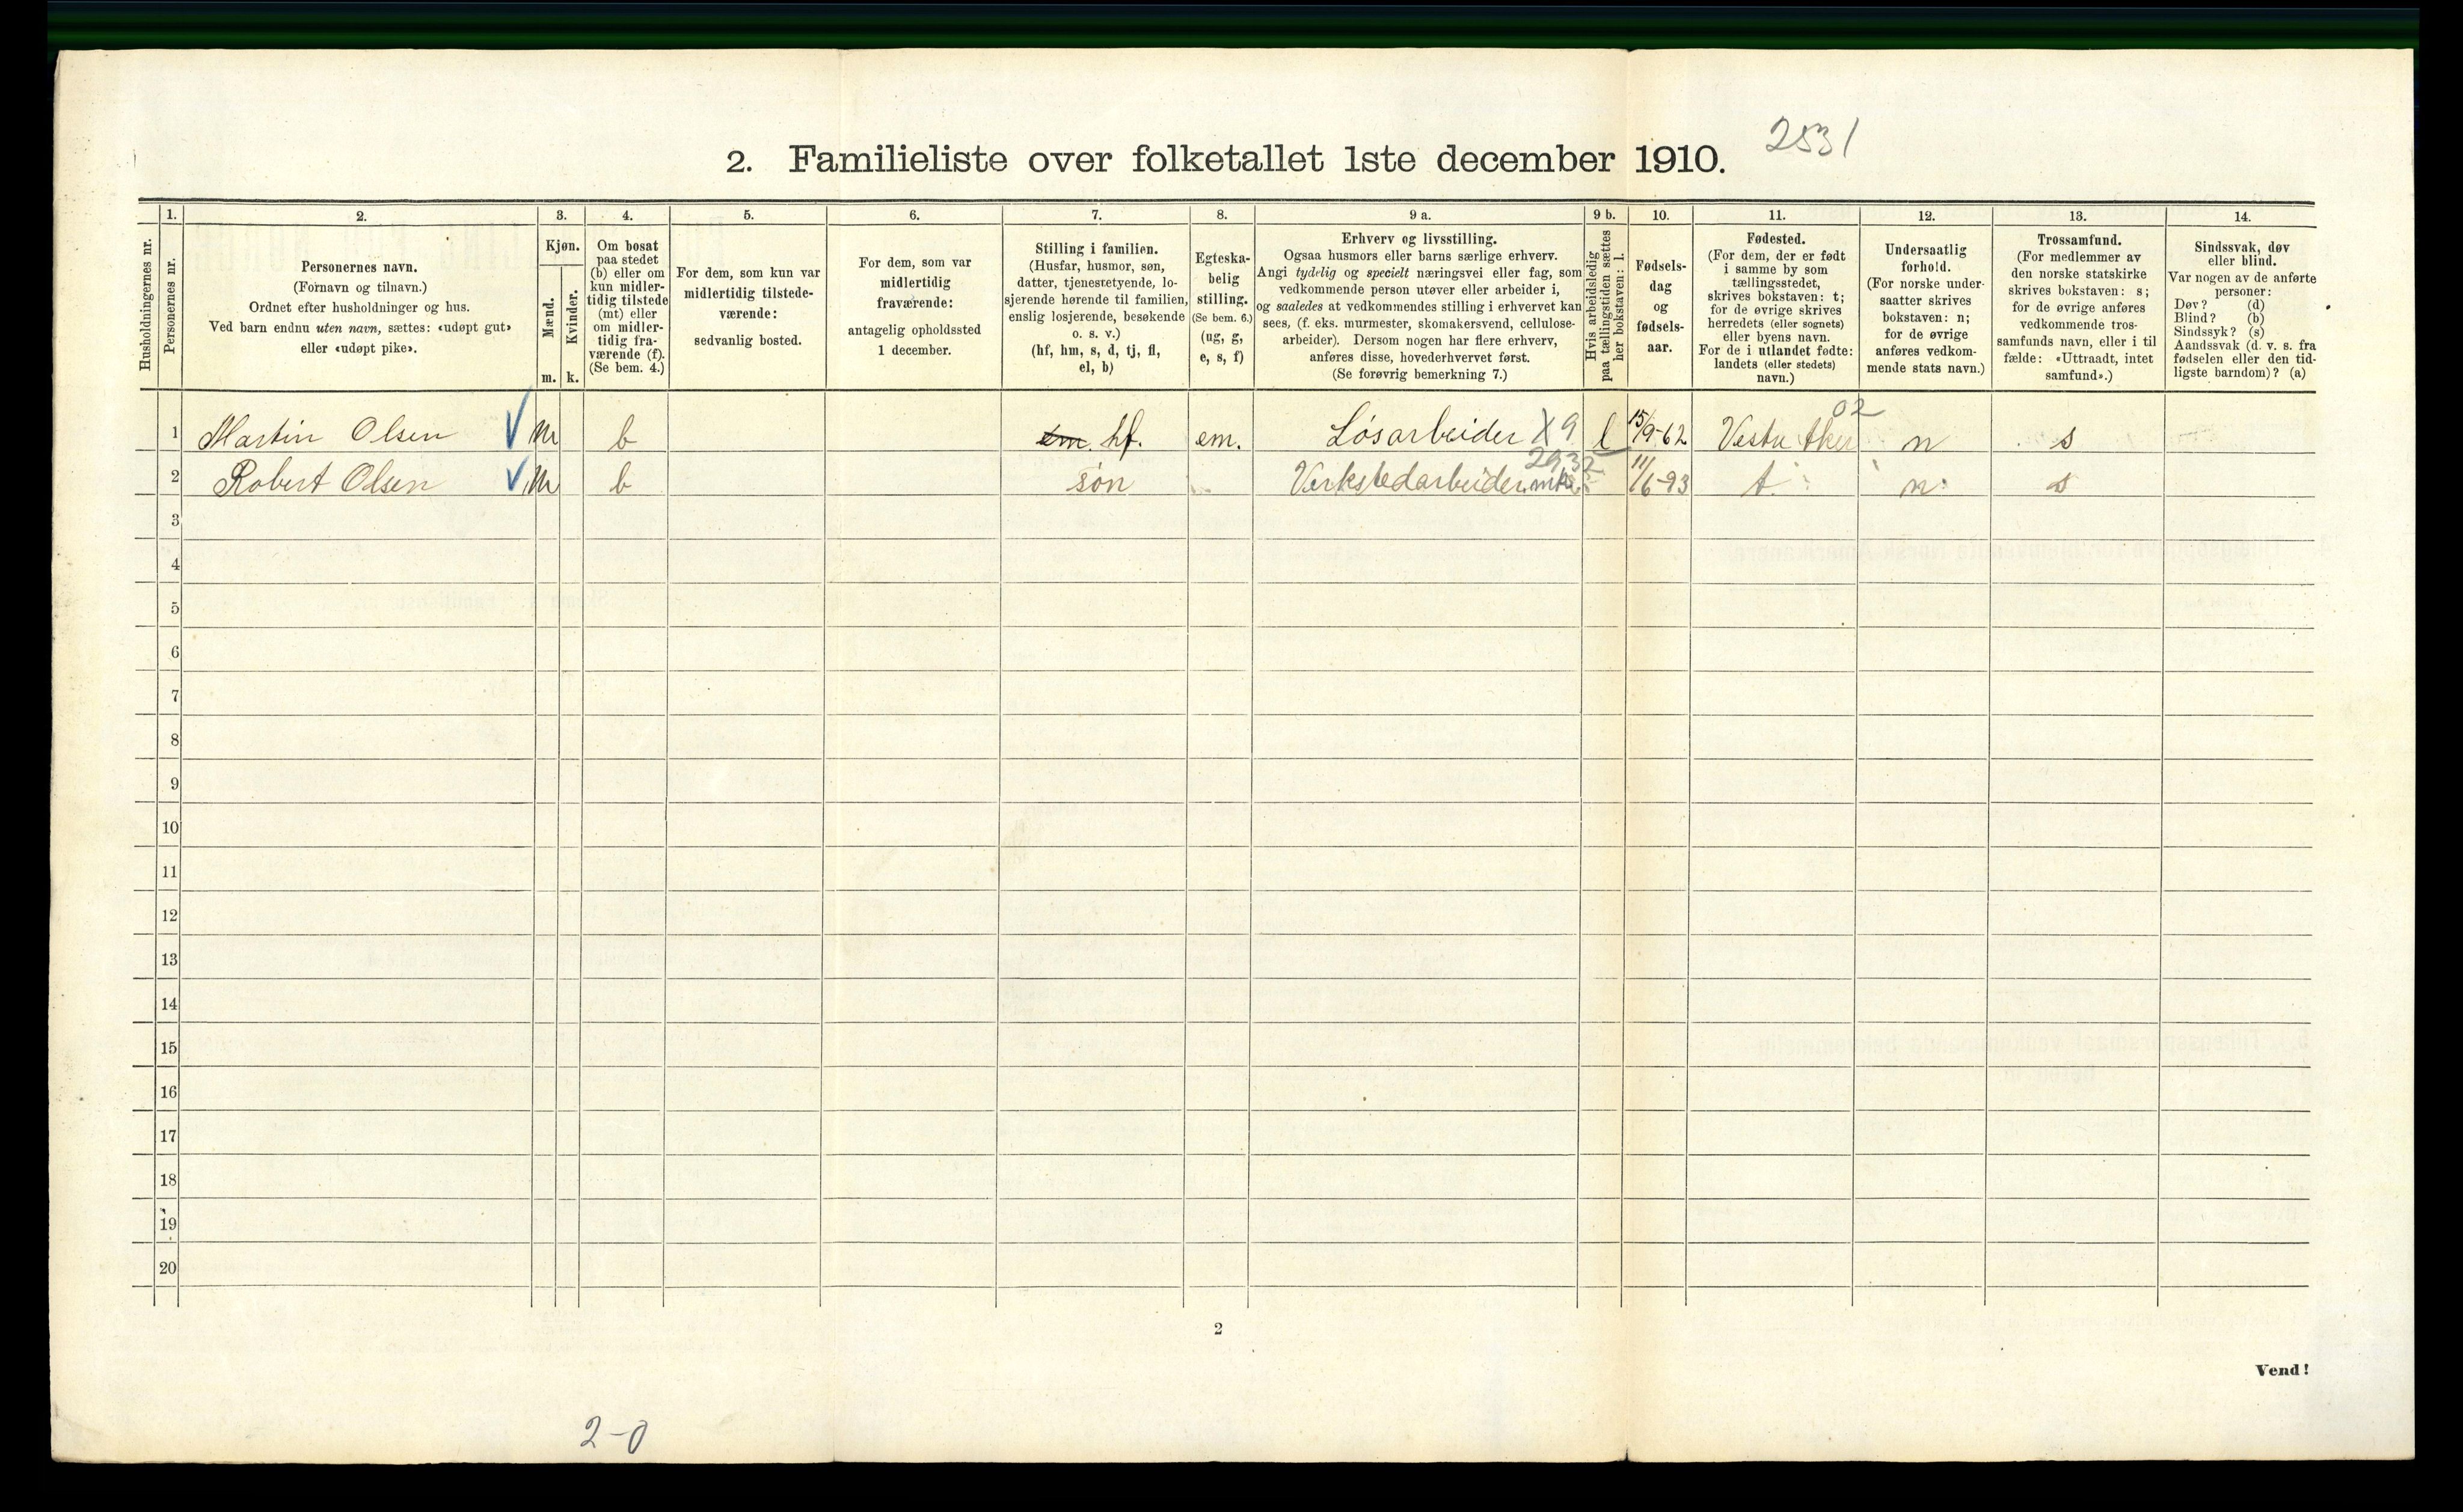 2531
2. Familieliste over folketallet 1ste december 1910.
1. 2. 3. 4. 5. 6. 7. 8. 9 a. 9 b. 10. 11. 12. 13. 14.
Husholdningernes nr.
Personernes nr.
Personernes navn.
(Fornavn og tilnavn.)
Ordnet efter husholdninger og hus.
Ved barn endnu uten navn, sættes: «udøpt gut»
eller «udøpt pike».
Kjøn.
Mænd.
Kvinder.
m. k.
Om bosat
paa stedet
(b) eller om
kun midler-
tidig tilstede
(mt) eller
om midler-
tidig fra-
værende (f).
(Se bem. 4.)
For dem, som kun var
midlertidig tilstede-
værende:
sedvanlig bosted.
For dem, som var
midlertidig
fraværende:
antagelig opholdssted
1 december.
Stilling i familien.
(Husfar, husmor, søn,
datter, tjenestetyende, lo-
sjerende hørende til familien,
enslig losjerende, besøkende
o. s. v.)
(hf, hm, s, d, tj, fl,
el, b)
Egteska-
belig
stilling.
(Se bem. 6.)
(ug, g,
e, s, f)
Erhverv og livsstilling.
Ogsaa husmors eller barns særlige erhverv.
Angi tydelig og specielt næringsvei eller fag, som
vedkommende person utøver eller arbeider i,
og saaledes at vedkommendes stilling i erhvervet kan
sees, (f. eks. murmester, skomakersvend, cellulose-
arbeider). Dersom nogen har flere erhverv,
anføres disse, hovederhvervet først.
(Se forøvrig bemerkning 7.)
Hvis arbeidsledig
paa tællingstiden sættes
her bokstaven: l.
Fødsels-
dag
og
fødsels-
aar.
Fødested.
(For dem, der er født
i samme by som
tællingsstedet,
skrives bokstaven: t;
for de øvrige skrives
herredets (eller sognets)
eller byens navn.
For de i utlandet fødte:
landets (eller stedets)
navn.)
Undersaatlig
forhold.
(For norske under-
saatter skrives
bokstaven: n;
for de øvrige
anføres vedkom-
mende stats navn.)
Trossamfund.
(For medlemmer av
den norske statskirke
skrives bokstaven: s;
for de øvrige anføres
vedkommende tros-
samfunds navn, eller i til
fælde: «Uttraadt, intet
samfund».)
Sindssvak, døv
eller blind.
Var nogen av de anførte
personer:
Døv? (d)
Blind? (b)
Sindssyk? (s)
Aandssvak (d. v. s. fra
fødselen eller den tid-
ligste barndom)? (a)
02
1 Martin Olsen m b em. hf. em. Løsarbeider X9 l 15/9-62 Vestre Aker n s
2932
2 Robert Olsen m b søn Verkstedarbeider mek. 11/6-93 t. n s
3
4
5
6
7
8
9
10
11
12
13
14
15
16
17
18
19
20
2
Vend!
2-0